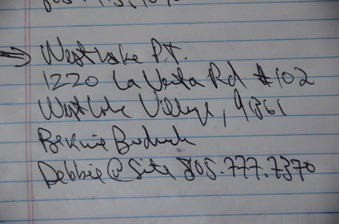 Westlake P.T.
1220 La Venta Rd #102
Westlake Village, 91361
Bernie
Debbie@Site 805.777.7370